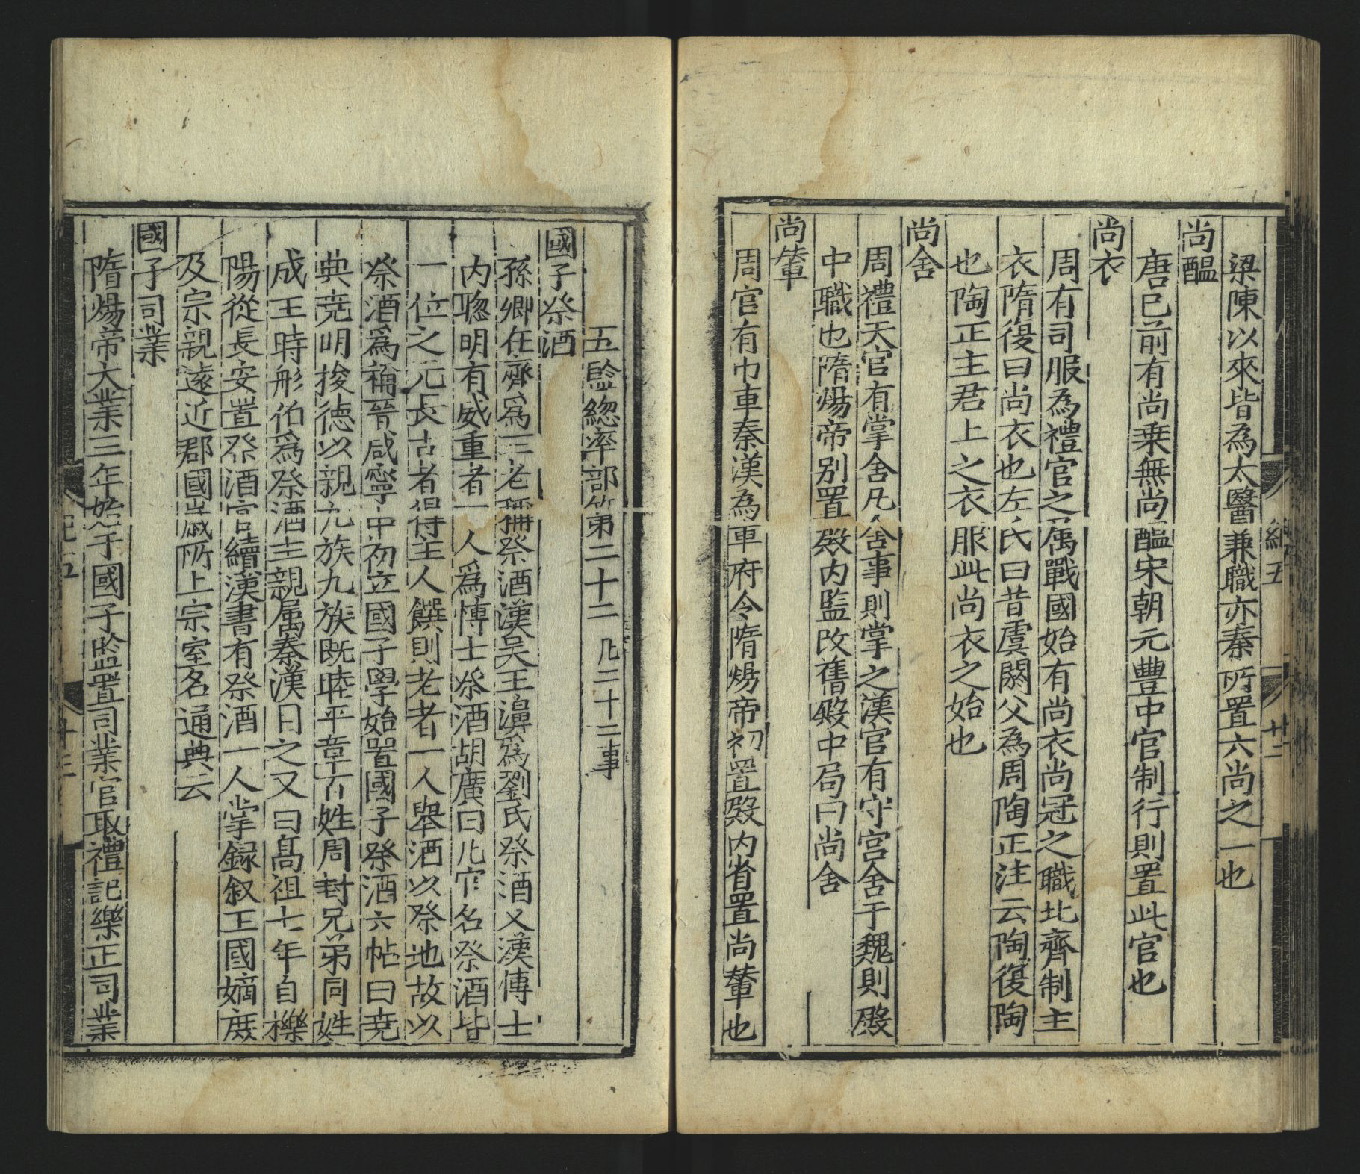 梁陳以來皆為太醫兼職亦秦所置六尚之一也
尚醖
唐已前有尚乗無尚醖宋朝元豐中官制行則置此官也
尚衣
周有司服為禮官之属戰國始有尚衣尚冠之職北齊制主
衣隋復曰尚衣也左氏曰昔虞閼父為周陶正注云陶復陶
也陶正主君上之衣服此尚衣之始也
尚舎
周禮天官有掌舎凡舎事則掌之漢官有守宮舎于魏則殿
中職也隋煬帝别置殿内監改舊殿中局曰尚舎
尚輦
周官有巾車秦漢為車府令隋煬帝初置殿内省置尚輦也
五監總率部第二十二 凡二十二事
國子祭酒
孫卿在齊為三老稱祭酒漢吴王濞為劉氏祭酒又漢博士
内聦明有威重者一人為博士祭酒胡廣曰凡官名祭酒皆
一位之元長古者得主人饌則老者一人舉酒以祭地故以
祭酒爲稱晉咸寧中初立國子學始置國子祭酒六帖曰堯
典堯明捘德以親九族九族既睦平章百姓周封兄弟同姓
成王時彤伯爲祭酒主親属秦漢曰之又曰髙祖七年自櫟
陽從長安置祭酒官續漢書有祭酒一人掌録叙王國嫡庶
及宗親逺近郡國歲所上宗室名通典云
國子司業
隋煬帝大業三年始于國子監置司業官取禮記樂正司業
紀五
廿二
廿三